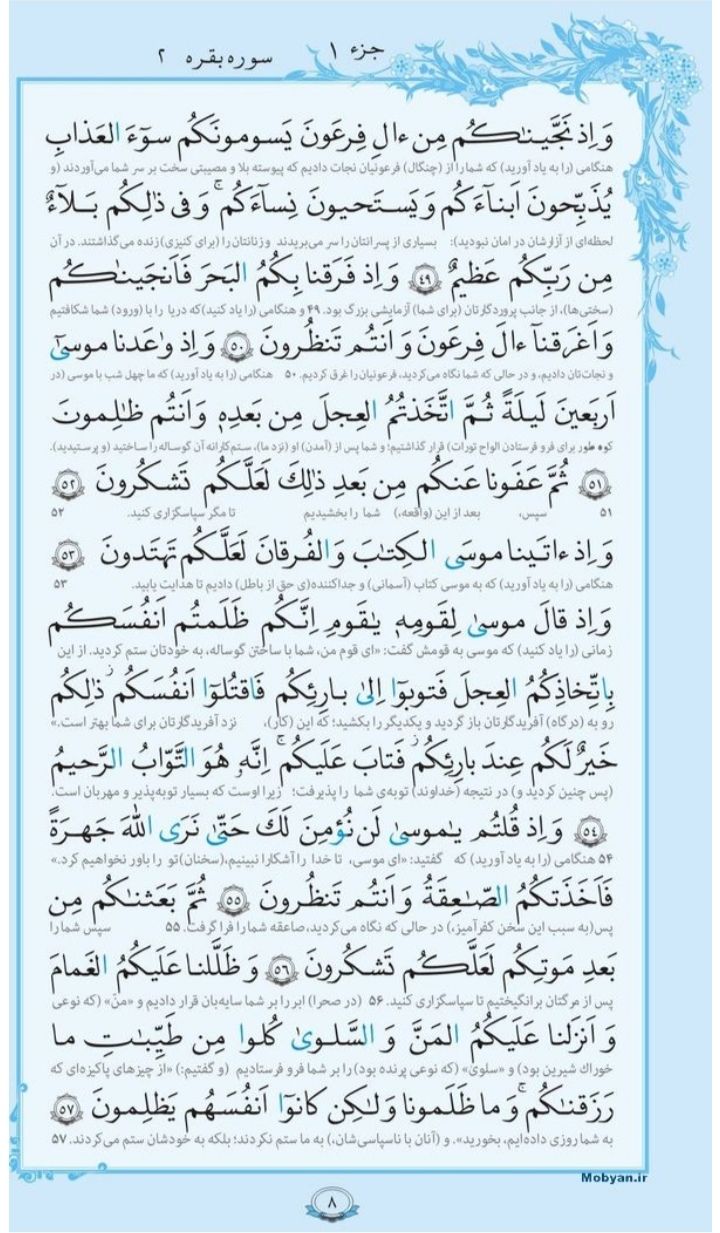 جزء ۱
سوره بقره ۲
وَ اِذ نَجَّينٰكُم مِن ءالِ فِرعَونَ يَسومونَكُم سوٓءَ العَذابِ
هنگامی (را به یاد آورید) که شما را از (چنگال) فرعونیان نجات دادیم که پیوسته بلا و مصیبتی سخت بر سر شما می‌آوردند (و
يُذَبِّحونَ اَبناۤءَكُم وَ يَستَحيونَ نِساۤءَكُم ۚ وَ فى ذٰلِكُم بَلاۤءٌ
لحظه‌ای از آزارشان در امان نبودید): بسیاری از پسرانتان را سر می‌بریدند و زنانتان را (برای کنیزی) زنده می‌گذاشتند. در آن
مِن رَبِّكُم عَظيمٌ ۴۹ وَ اِذ فَرَقنا بِكُمُ البَحرَ فَاَنجَينٰكُم
(سختی‌ها)، از جانب پروردگارتان (برای شما) آزمایشی بزرگ بود. ۴۹ و هنگامی (را یاد کنید) که دریا را با (ورود) شما شکافتیم
وَ اَغرَقناۤ ءالَ فِرعَونَ وَ اَنتُم تَنظُرونَ ۵۰ وَ اِذ وٰعَدنا موسىٰۤ
و نجات‌تان دادیم، و در حالی که شما نگاه می‌کردید، فرعونیان را غرق کردیم. ۵۰ هنگامی (را به یاد آورید) که ما چهل شب با موسی (در
اَربَعينَ لَيلَةً ثُمَّ اتَّخَذتُمُ العِجلَ مِن بَعدِهٖ وَ اَنتُم ظٰلِمونَ
کوه طور برای فرو فرستادن الواح تورات) قرار گذاشتیم؛ و شما پس از (آمدن) او (نزد ما)، ستم‌کارانه آن گوساله را ساختید (و پرستیدید).
۵۱ ثُمَّ عَفَونا عَنكُم مِن بَعدِ ذٰلِكَ لَعَلَّكُم تَشكُرونَ ۵۲
۵۱ سپس، بعد از این (واقعه،) شما را بخشیدیم تا مگر سپاسگزاری کنید. ۵۲
وَ اِذ ءاتَينا موسَى الكِتٰبَ وَ الفُرقانَ لَعَلَّكُم تَهتَدونَ ۵۳
هنگامی (را به یاد آورید) که به موسی کتاب (آسمانی) و جداکننده(ی حق از باطل) دادیم تا هدایت یابید. ۵۳
وَ اِذ قالَ موسىٰ لِقَومِهٖ يٰقَومِ اِنَّكُم ظَلَمتُم اَنفُسَكُم
زمانی (را یاد کنید) که موسی به قومش گفت: «ای قوم من، شما با ساختن گوساله، به خودتان ستم کردید. از این
بِاتِّخاذِكُمُ العِجلَ فَتوبوۤا اِلىٰ بارِئِكُم فَاقتُلوۤا اَنفُسَكُم ۚ ذٰلِكُم
رو به (درگاه) آفریدگارتان باز گردید و یکدیگر را بکشید؛ که این (کار)، نزد آفریدگارتان برای شما بهتر است.»
خَيرٌ لَكُم عِندَ بارِئِكُم فَتابَ عَلَيكُم ۚ اِنَّهٗ هُوَ التَّوّابُ الرَّحيمُ
(پس چنین کردید و) در نتیجه (خداوند) توبه‌ی شما را پذیرفت؛ زیرا اوست که بسیار توبه‌پذیر و مهربان است.
۵۴ وَ اِذ قُلتُم يٰموسىٰ لَن نُؤمِنَ لَكَ حَتّىٰ نَرَى اللّٰهَ جَهرَةً
۵۴ هنگامی (را به یاد آورید) که گفتید: «ای موسی، تا خدا را آشکارا نبینیم، (سخنان) تو را باور نخواهیم کرد.»
فَاَخَذَتكُمُ الصّٰعِقَةُ وَ اَنتُم تَنظُرونَ ۵۵ ثُمَّ بَعَثنٰكُم مِن
پس (به سبب این سخن کفرآمیز،) در حالی که نگاه می‌کردید، صاعقه شما را فرا گرفت. ۵۵ سپس شما را
بَعدِ مَوتِكُم لَعَلَّكُم تَشكُرونَ ۵۶ وَ ظَلَّلنا عَلَيكُمُ الغَمامَ
پس از مرگتان برانگیختیم تا سپاسگزاری کنید. ۵۶ (در صحرا) ابر را بر شما سایه‌بان قرار دادیم و «منّ» (که نوعی
وَ اَنزَلنا عَلَيكُمُ المَنَّ وَ السَّلوىٰ كُلوا مِن طَيِّبٰتِ ما
خوراک شیرین بود) و «سلوی» (که نوعی پرنده بود) را بر شما فرو فرستادیم (و گفتیم:) «از چیزهای پاکیزه‌ای که
رَزَقنٰكُم ۚ وَ ما ظَلَمونا وَ لٰكِن كانوۤا اَنفُسَهُم يَظلِمونَ ۵۷
به شما روزی داده‌ایم، بخورید». و (آنان با ناسپاسی‌شان،) به ما ستم نکردند؛ بلکه به خودشان ستم می‌کردند. ۵۷
Mobyan.ir
۸